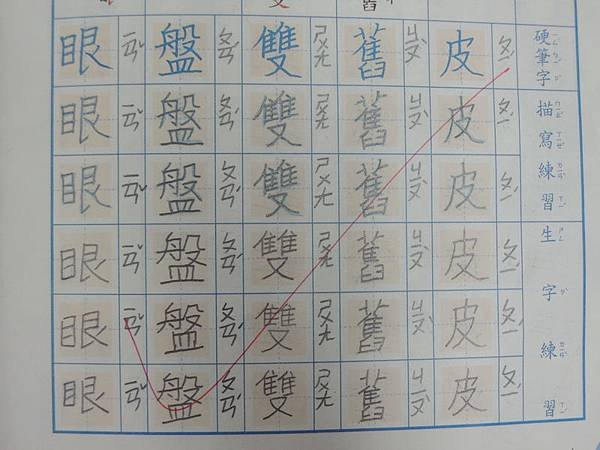 硬筆字
描寫練習
生字練習
ㄆㄧˊ ㄆㄧˊ ㄆㄧˊ ㄆㄧˊ ㄆㄧˊ ㄆㄧˊ
皮皮皮皮皮皮
ㄐㄧㄡˋ ㄐㄧㄡˋ ㄐㄧㄡˋ ㄐㄧㄡˋ ㄐㄧㄡˋ ㄐㄧㄡˋ
舊舊舊舊舊舊
ㄕㄨㄤ ㄕㄨㄤ ㄕㄨㄤ ㄕㄨㄤ ㄕㄨㄤ ㄕㄨㄤ
雙雙雙雙雙雙
ㄆㄢˊ ㄆㄢˊ ㄆㄢˊ ㄆㄢˊ ㄆㄢˊ ㄆㄢˊ
盤盤盤盤盤盤
ㄧㄢˇ ㄧㄢˇ ㄧㄢˇ ㄧㄢˇ ㄧㄢˇ ㄧㄢˇ
眼眼眼眼眼眼